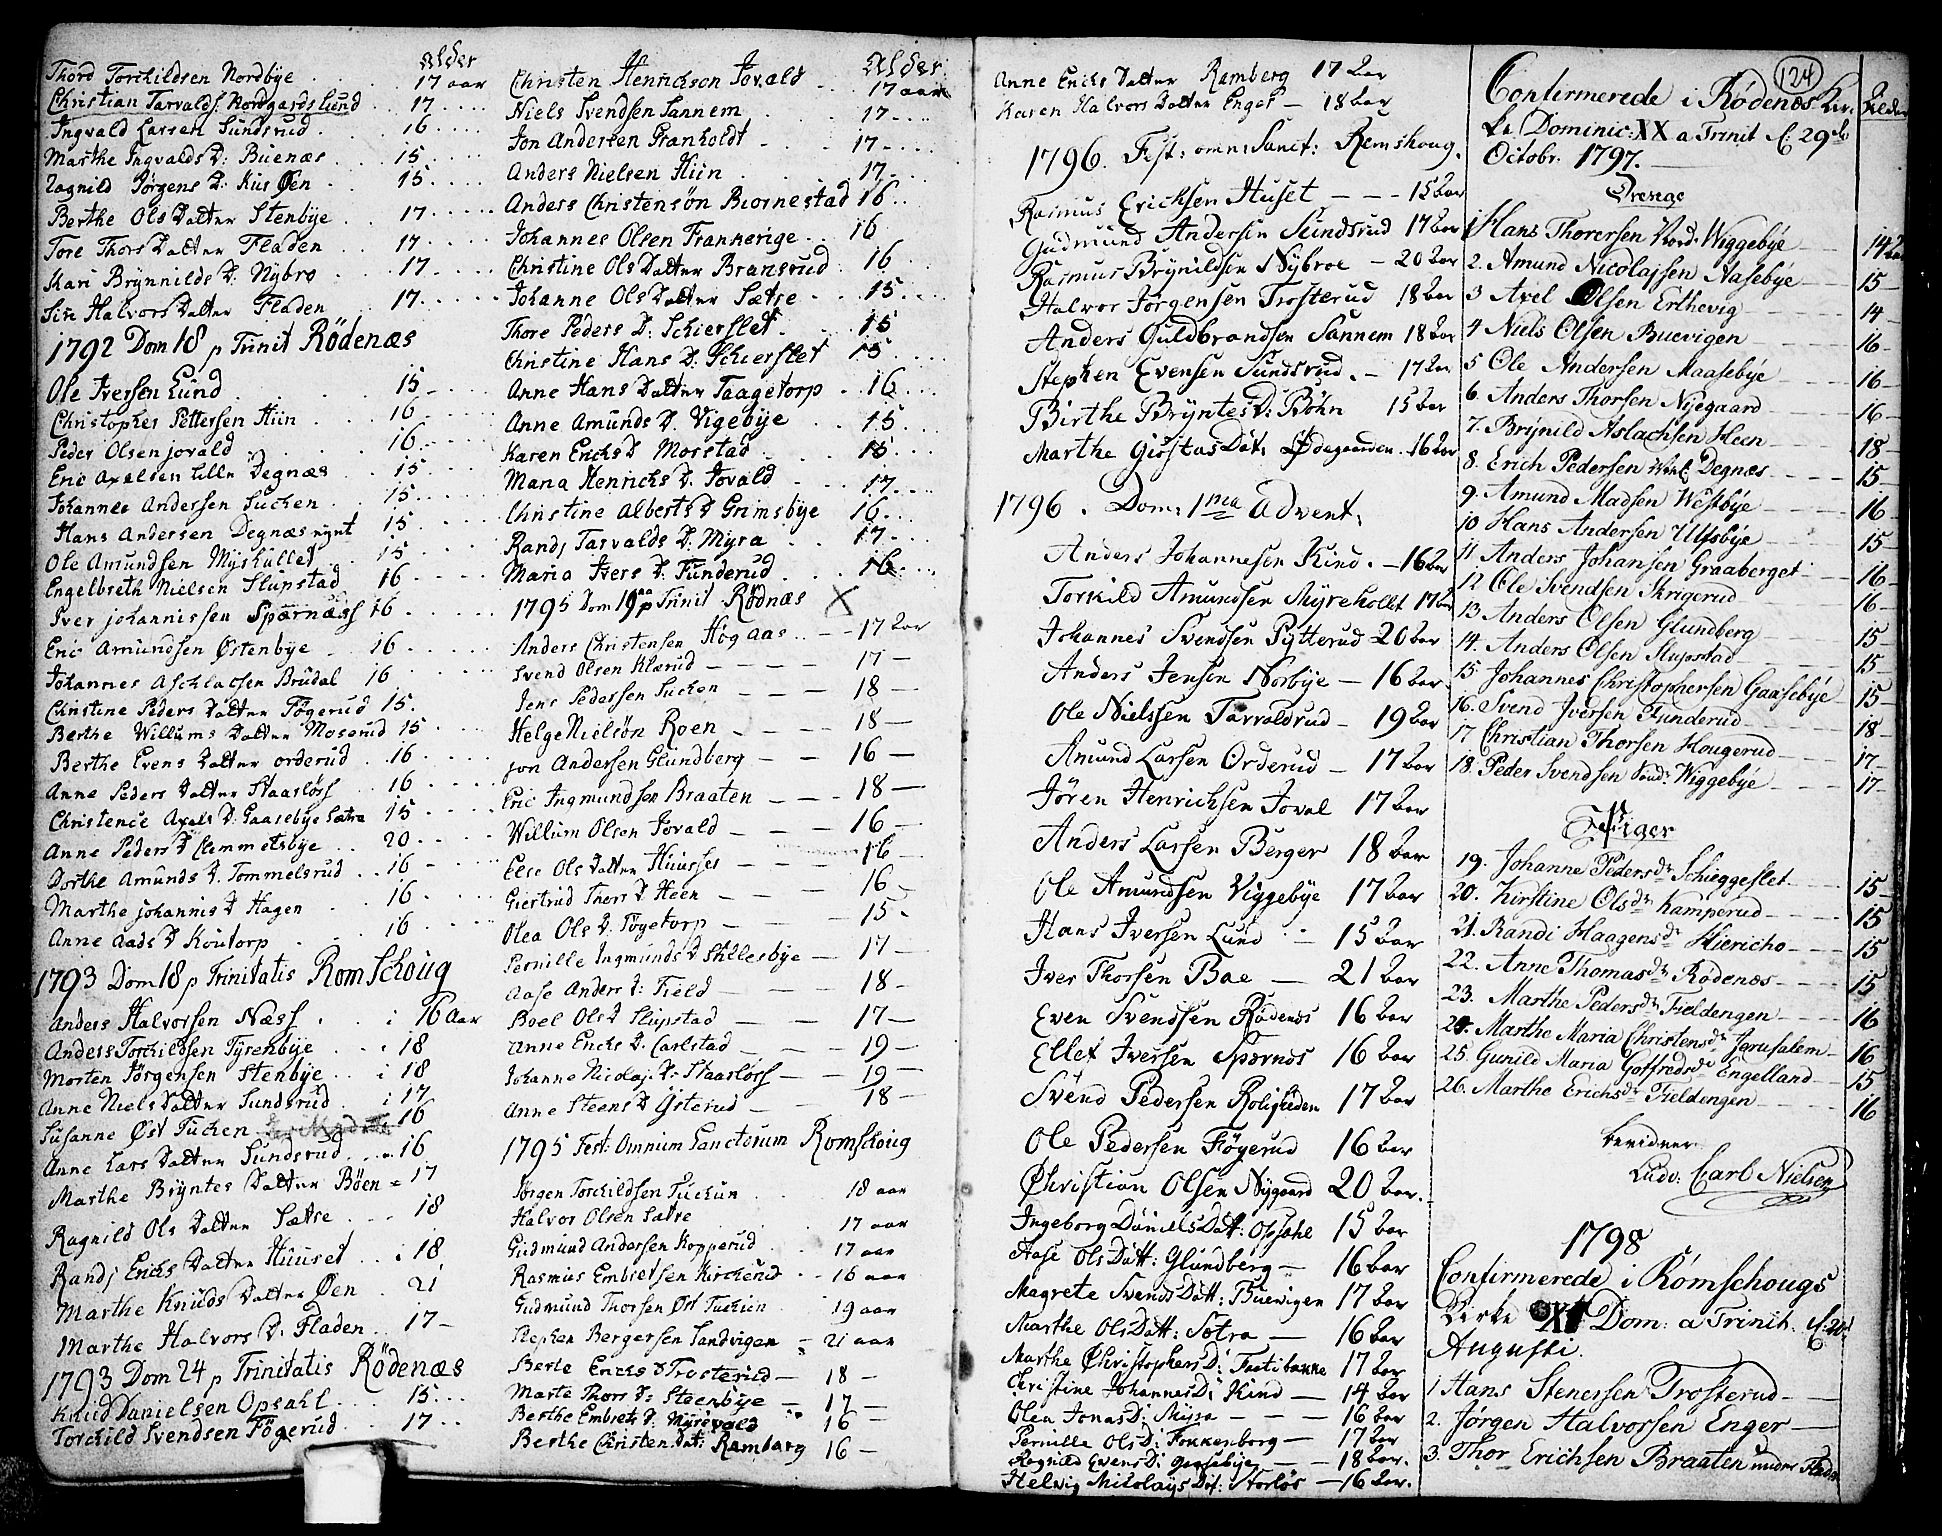 Alder
Thord Torchildsen Nordbÿe 17 aar
Christian Tarvalds: Nordgards Lund 17
Ingvald Larsen Sundsrud 16
Marthe Ingvalds D: Buenæs 15
Ragnild Jørgens D: Øen 15
Berthe Ols Datter Stenbÿe 17
Tore Thors Datter Fladen 17
Kari Brÿnnilds D. Nÿbro 17
Siri Halvors Datter Fladen 17
1792 Dom 18 p Trinit Rödenæs
Ole Iversen Lund 15
Christopher Pettersen Hiin 16
Peder Olsen jovald 16
Eric Axelsen Lille Degnæs 15
Johannes Andersen Tucken 15
Hans Andersen Degnæs 15
Ole Amundsen Mÿshüllet 15
Engelbreth Nielsen Slupstad 16
Iver johannissen Spærnæss 16
Eric Amundsen Østenbÿe 16
Johannes Aschlacsen Brudal 16
Christine Peders Datter Fögerud 15
Berthe Willums Datter Moserud 15
Berthe Evens Datter orderud 16
Anne Peders Datter Staarlöss 16
Christence Axels D: Gaasebÿe Sætra 15
Anne Peders D Clemmetsbÿe 20
Dorthe Amunds D. Tommelsrud 16
Marthe johannis D Hagen 16
Anne Aads D Koutorp 16
1793 Dom 18 p Trinitatis Romschoug
Anders Halvorsen Næss 16 Aar
Anders Torchildsen Tÿrenbÿe 18
Morten Jörgensen Stenbÿe 18
Anne Niels Datter Sundsrud 17
Susanne Øst Tucken 16
Anne Lars Datter Sundsrud 16
Marthe Brÿntes Datter Böen 17
Ragnild Ols Datter Sætre 18
Randj Erichs Datter Huuset 18
Marthe Knüds Datter Øen 21
Marthe Halvors D: Fladen 17
1793 Dom 24 p Trinitatis Rödenæs
Knüd Danielsen Opsahl 15
Torchild Svendsen Fögerud 17
Alder
Christen Henrichsen Jovald 17 aar
Niels Svendsen Sannem 17
Jon Andersen Granholdt 17
Anders Nielsen Hiin 17
Anders Christensön Biornestad 16
Johannes Olsen Frankerige 16
Christine Ols Datter Bransrud 16
Johanne Ols Datter Sætre 15
Thore Peders D: Schierslet 15
Christine Hans D: Schierslet 15
Anne Hans Datter Taagetorp 16
Anne Amunds D. Vigebÿe 15
Karen Erichs D Morstad 15
Maria Henrichs D. Jovald 17
Christine Alberts D Grimsbÿe 16
Randj Tarvalds D: Mÿra 17
Maria Ivers D: Funderud 16
1795 Dom 19 p Trinit Rødnæs X
Anders Christensen Högaas 17 Aar
Svend Olsen Klærud 17
Jens Pedersen Tucken 18
Helge Nielsön Roen 18
jon Andersen Glundberg 16
Eric Ingmundsen Braaten 18
Willum Olsen Jovald 16
Else Ols Datter Huuses 16
Giertrud Thors D Heen 16
Olea Ols D: Tögetorp 15
Pernille Ingmunds D Stillesbÿe 17
Aase Anders D: Field 18
Boel Ols D Slupstad 17
Anne Erichs D: Carlstad 19
Johanne Nicolaj: D: Staarlöss 19
Anne Steens D Gisterud 18
1795 Fest: Omnium Sanctorum Romschoug
Jörgen Torchildsen Tuckun 18 aar
Halvor Olsen Sætre 17 aar
Gudmund Andersen Kopperud 17 aar
Rasmus Embretsen Kirckerud 16 aar
Gudmund Thorsen Øst Tuckun 19 aar
Stephen Bergersen Sandvigen 21 aar
Berte Erichs D Trosterud 18
Marte Thors D: Steenbÿe 17
Berthe Embrets D: Mÿrevold 16
Berthe Christen Dat: Ramberg 16
Anne Erichs Datter Ramberg 17 Aar
Karen Halvors Datter Enger 18 Aar
1796. Fest: omn: Sanct: Remshoug.
Rasmus Erichsen Huset 15 Aar
Gudmund Andersen Sundsrud 17 Aar
Rasmus Brÿnildsen Nÿbroe 20 Aar
Halvor Jørgensen Trosterud 18 Aar
Anders Guldbrandsen Sannem 18 Aar
Stephen Evensen Sundsrud 17 Aar
Birthe Brÿntes D: Böhn 15 Aar
Marthe Giöstas Dat: Ødegaarden 16 Aar
1796. Dom: 1ma Advent:
Anders Johannesen Kind 16 Aar
Torkild Amundsen Mÿreholtt 17 Aar
Johannes Svendsen Pÿtterud 20 Aar
Anders Jensen Norbÿe 16 Aar
Ole Nielssen Tarvaldrud 19 Aar
Amund Larsen Orderud 17 Aar
Jören Henrichsen Joval 17 Aar
Anders Larsen Berger 18 Aar
Ole Amundsen Viggebÿe 17 Aar
Hans Iversen Lund 15 Aar
Iver Thorsen Bae 21 Aar
Even Svendsen Rødenes 16 Aar
Ellef Iversen Spærnos 16 Aar
Svend Pedersen Roligheden 17 Aar
Ole Pedersen Föÿerud 16 Aar
Christian Olsen Nÿgaard 20 Aar
Ingeborg Daniels Datt: Opsahl 15 Aar
Aase Ols Datt: Glundberg 16 Aar
Magrete Svends Datt: Buevigen 17 Aar
Marthe Ols Datt: Sætra 16 Aar
Marthe Christophers D: 17 Aar
Christine Johannes D: Kind 14 Aar
Olea Jonas D: Mÿra 16 Aar
Pernille Ols D: Fokkenborg 17 Aar
Ragnild Evens D: Gaasebÿe 18 Aar
Helvig Nikolaÿs Dat: Storløs 16 Aar
124
Confirmerede i Rødenæs Kir: Alder
Dominic: XX a Trinit d: 29de
Octobr: 1797.
Drenge
1 Hans Thorersen Nord: Wiggebÿe 14
2. Amund Nicolajsen Aasebÿe 15
3 Axel Olsen Erthevig 14
4 Niels Olsen Buevigen 16
5 Ole Andersen Maasebÿe 16
6. Anders Thorsen Nÿegaard 16
7. Brÿnild Aslachsen Heen 18
8. Erich Pedersen Degnæs 15
9. Amund Madsen Westbÿe 16
10 Hans Andersen Ulfsbÿe 15
11 Anders Johansen Graaberget 16
12 Ole Svendsen Skrigerud 16
13. Anders Olsen Glundberg 15
14. Anders Olsen Slupstad 15
15 Johannes Christophersen Gaasebÿe 15
16. Svend Iversen Funderud 18
17. Christian Thorsen Hougerud 17
18. Peder Svendsen Sønd: Wiggebÿe 17
Piger
19. Johanne Pedersdr Schieggeslet 15
20. Kirstine Olsdr Kamperud 15
21. Randi Haagensdr Hiericho 15
22. Anne Thomasdr Rødenæs 15
23. Marthe Pedersdr Fieldengen 16
24. Marthe Maria Christensdr Jerusalem 16
25. Gunild Maria Goffredsdr Engelland 15
26. Marthe Erichsdr Fieldengen 16
bevidner
Ludv: Carl Nielsen
1798
Confirmerede i Rømschougs
Kirke XI Dom: a Trinit:
Augusti.
1 Hans Stenersen Trosterud
2. Jørgen Halvorsen Enger
3. Thor Erichsen Braaten under